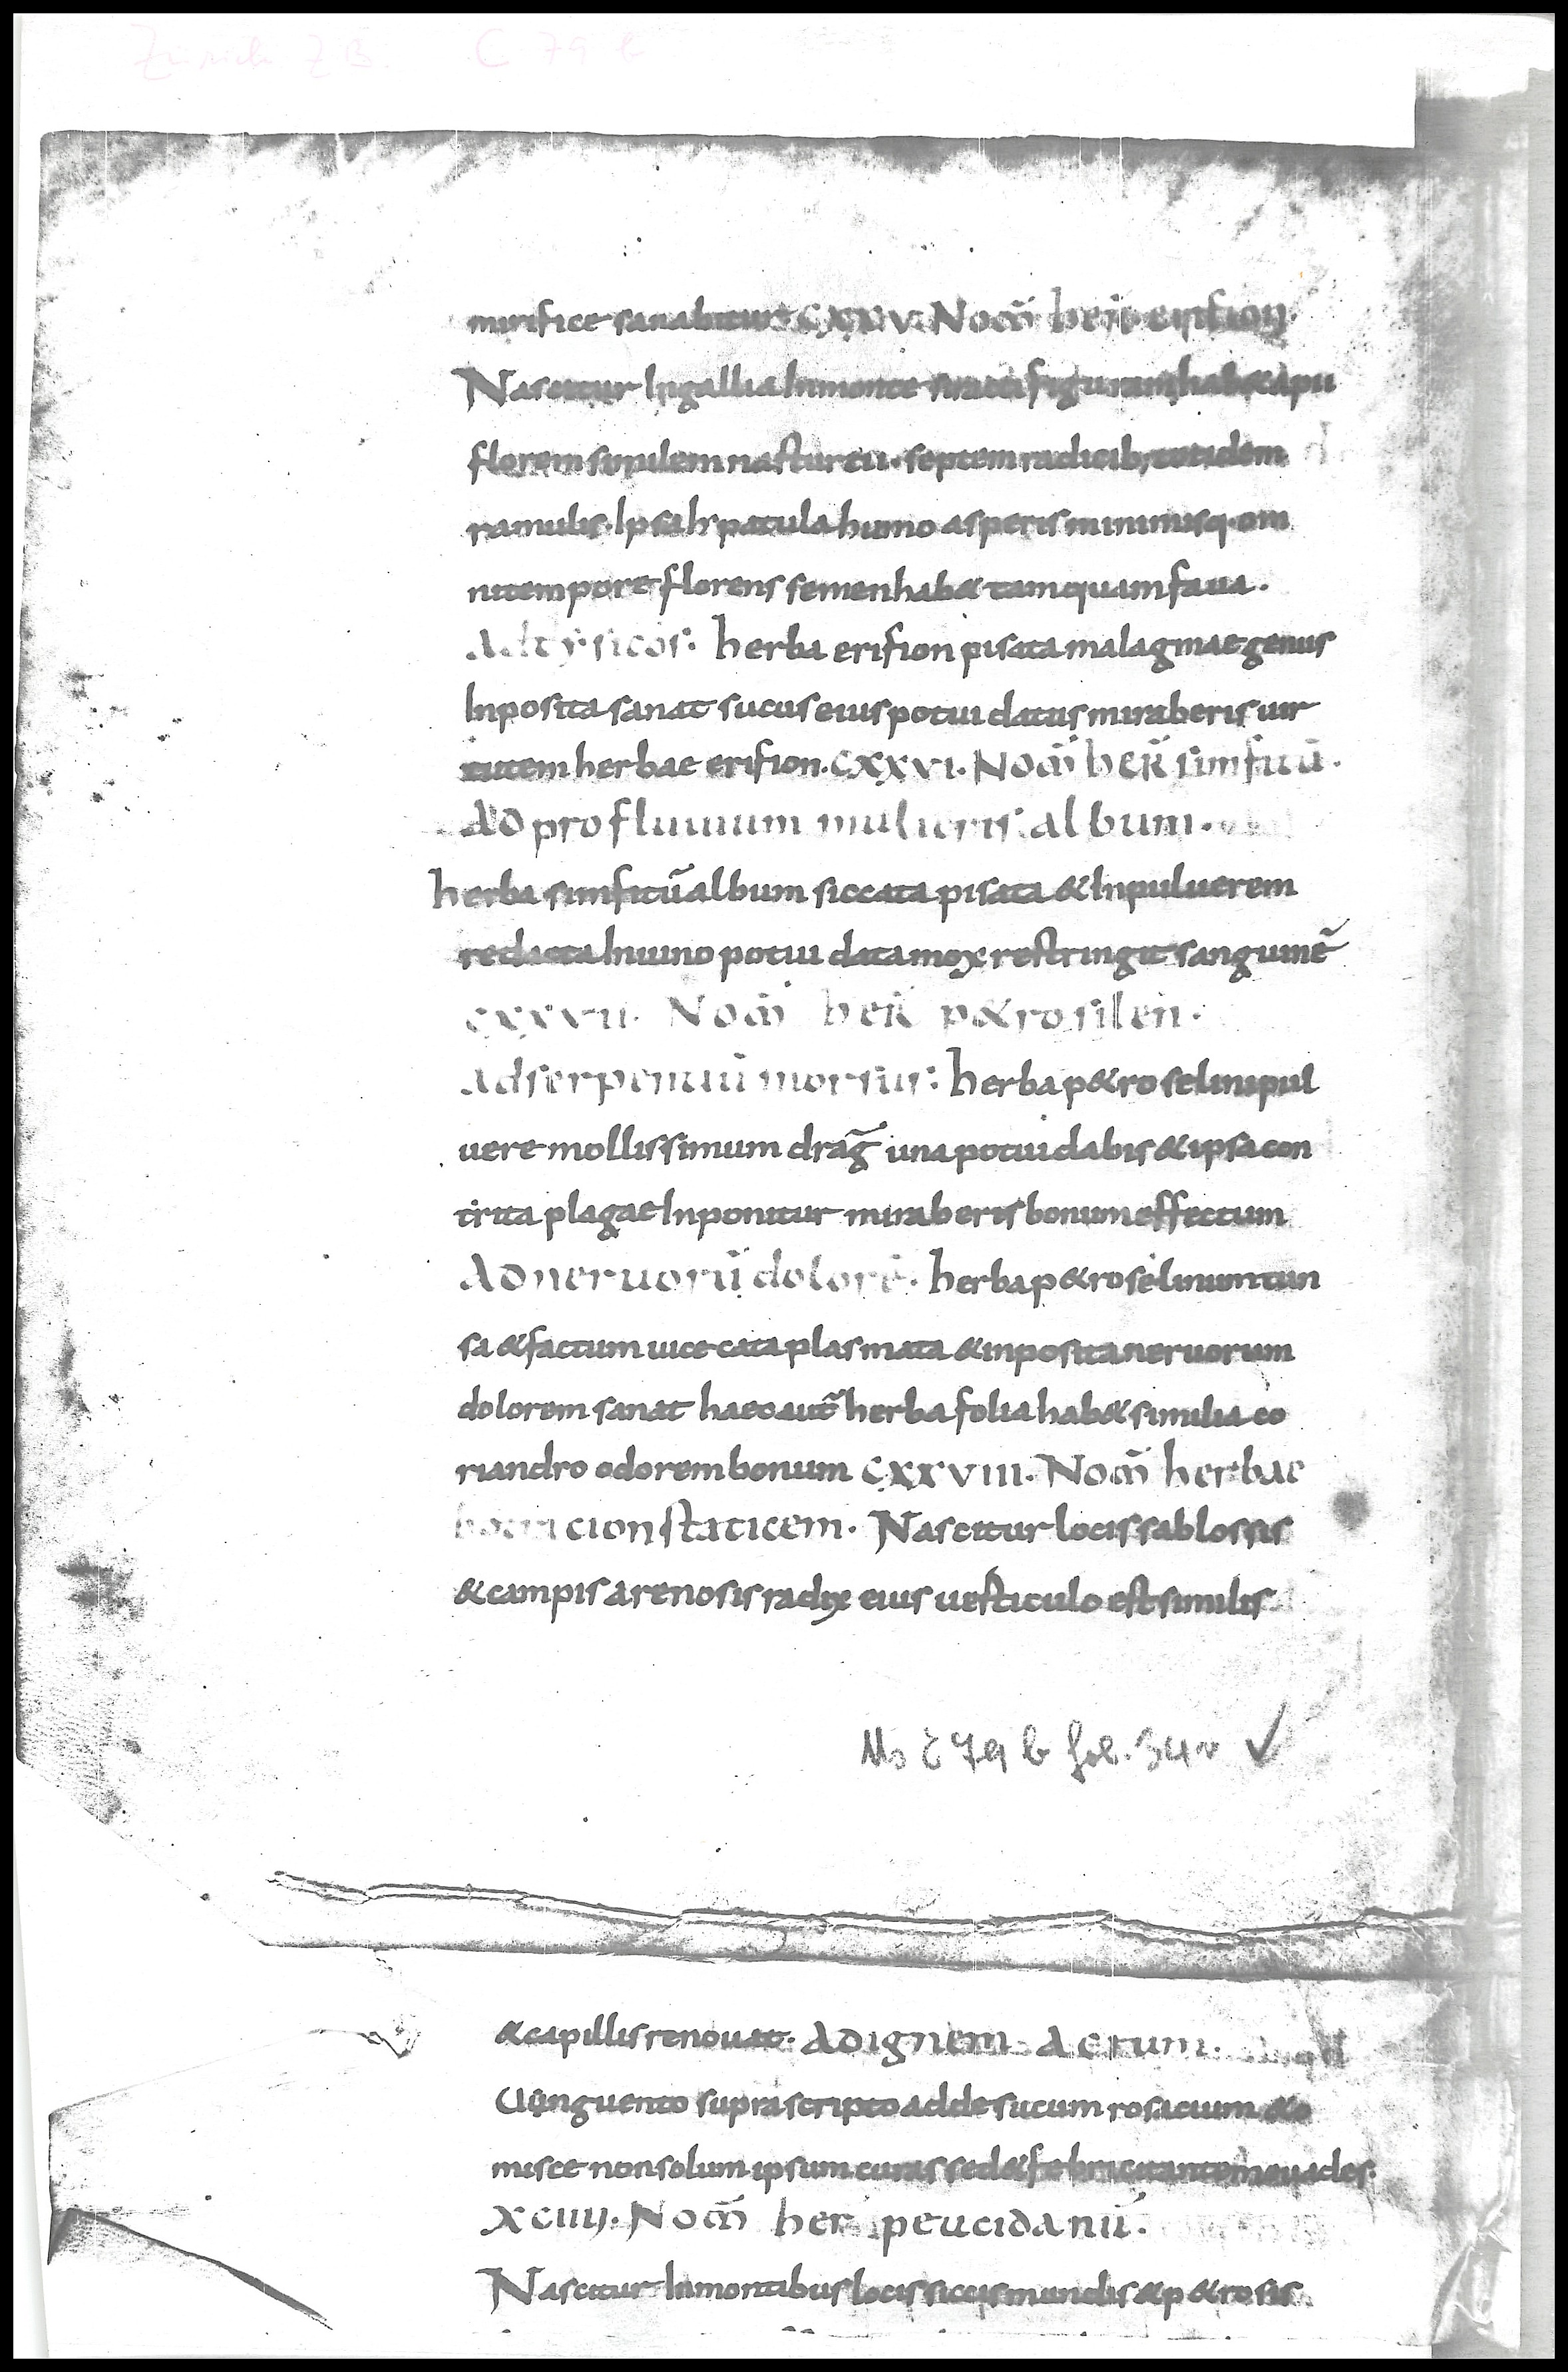 Zürich ZB. C 79 b
mirifice sanabitur CXXV. Nom̄ her̄ erifion
Nascitur In gallia In monte figuram hab& apii
florem similem nasturcii. septem radicib; totidem
ramulis. Ipsa h patula humo asperis minimisq. om
ni tempore florens semen hab& tamquam faua.
Ad tysicos: herba erifion pisata malagmae genus
Inposita sanat sucus eius potui datus miraberis uir
tutem herbae erifion. CXXVI. Nom̄ her̄ simfitū.
Ad profluuium mulieris album.
herba simfitū album siccata pisata & In puluerem
redacta In uino potui data mox restringit sanguinē
CXXVII. Nom̄ her̄ p&rosilen.
ad serpentiū morsus: herba p&roselini pul
uere mollissimum draḡ una potui dabis & ipsa con
trita plagae Inponitur miraberis bonum effectum
Ad neruorū dolorē. herba p&roselinum tun
sa & factum uice cataplasmata & inposita neruorum
dolorem sanat haec autē herba folia hab& similia co
riandro odorem bonum CXXVIII. Nom̄ herbae
cion staticem. Nascitur locis sablosis
& campis arenosis radix eius uesticulo est similis
Ms C 79 b fol. 34v ✓
& capillis renouat. Ad ignem Acrum.
Uunguento suprascripto adde sucum rosacium & c
misce non solum ipsum curas sed & febricitantem euades.
XCIIII. Nom̄ her peucidanū.
Nascitur In montibus locis siccis mundis & p&rosis